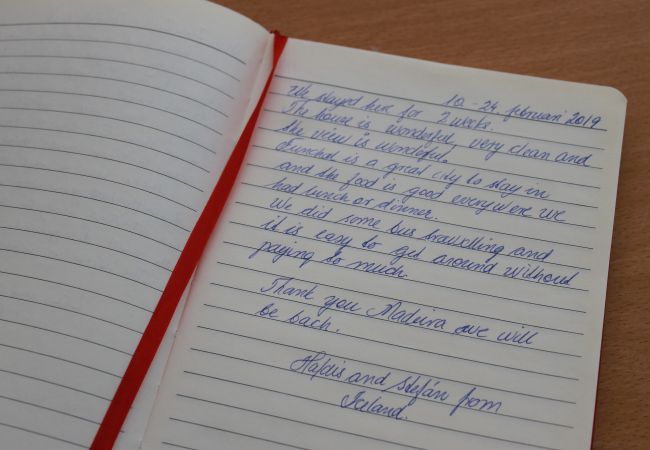 10 - 24 februari 2019
We stayed here for 2 weeks.
The house is wonderful, very clean and
the view is wonderful.
Funchal is a great city to stay in
and the food is good everywere we
had lunch or dinner.
We did some bus travelling and
it is easy to get around without
paying to much.
Thank you Madeira we will
be back.
Hafdís and Stefán from
Iceland.